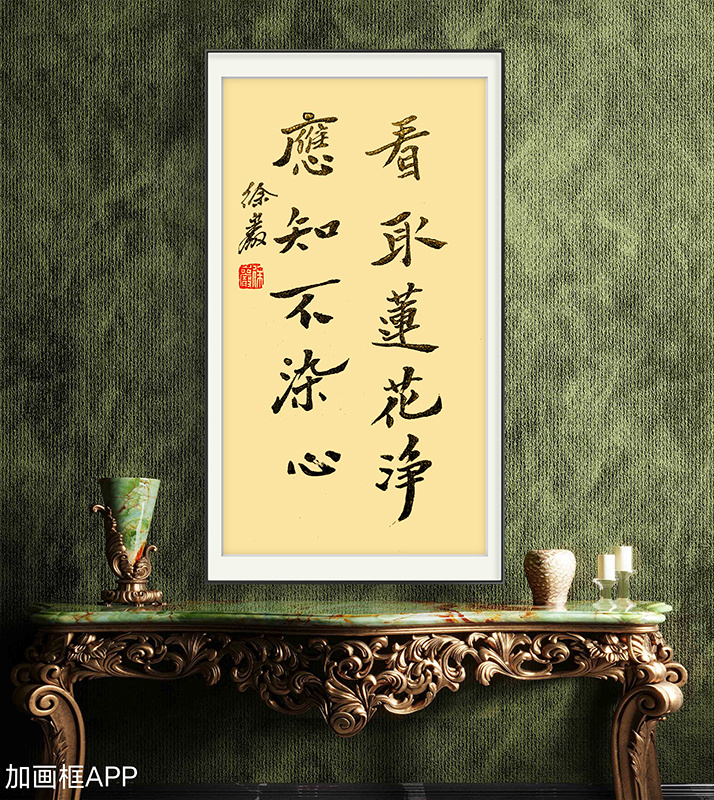 看取蓮花浄
應知不染心
徐巖
加画框APP